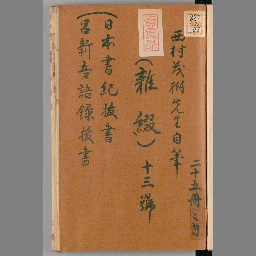 西村茂樹先生自筆
二十五冊之内
(雜綴)十三號
(日本書紀抜書
呂新吾語録抜書